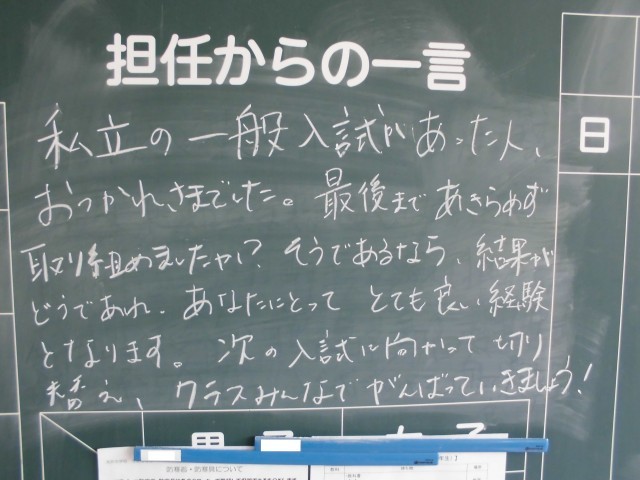 担任からの一言
私立の一般入試があった人、
おつかれさまでした。最後まであきらめず
取り組めましたか!? そうであるなら、結果が
どうであれ、あなたにとって とても良い経験
となります。次の入試に向かって切り
替え、クラスみんなでがんばっていきましょう!
日
男子 女子